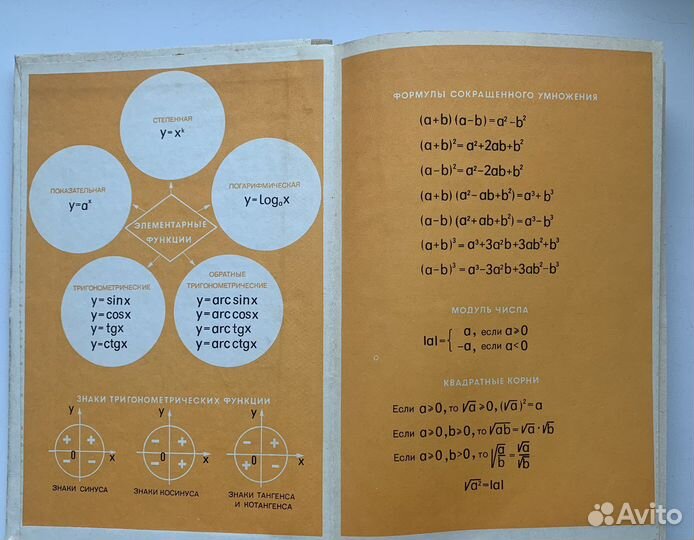 СТЕПЕННАЯ
y=xᵏ
ПОКАЗАТЕЛЬНАЯ
y=aˣ
ЛОГАРИФМИЧЕСКАЯ
y=logₐx
ЭЛЕМЕНТАРНЫЕ
ФУНКЦИИ
ТРИГОНОМЕТРИЧЕСКИЕ
y=sinx
y=cosx
y=tgx
y=ctgx
ОБРАТНЫЕ
ТРИГОНОМЕТРИЧЕСКИЕ
y=arcsinx
y=arccosx
y=arctgx
y=arcctgx
ЗНАКИ ТРИГОНОМЕТРИЧЕСКИХ ФУНКЦИИ
y
+ +
0 x
− −
ЗНАКИ СИНУСА
y
− +
0 x
− +
ЗНАКИ КОСИНУСА
y
− +
0 x
+ −
ЗНАКИ ТАНГЕНСА
И КОТАНГЕНСА
ФОРМУЛЫ СОКРАЩЕННОГО УМНОЖЕНИЯ
(a+b)(a−b)=a²−b²
(a+b)²=a²+2ab+b²
(a−b)²=a²−2ab+b²
(a+b)(a²−ab+b²)=a³+b³
(a−b)(a²+ab+b²)=a³−b³
(a+b)³=a³+3a²b+3ab²+b³
(a−b)³=a³−3a²b+3ab²−b³
МОДУЛЬ ЧИСЛА
|a|={ a, если a⩾0
−a, если a<0
КВАДРАТНЫЕ КОРНИ
Если a⩾0, то √a⩾0, (√a)²=a
Если a⩾0, b⩾0, то √ab=√a·√b
Если a⩾0, b>0, то √(a/b)=√a/√b
√a²=|a|
Avito